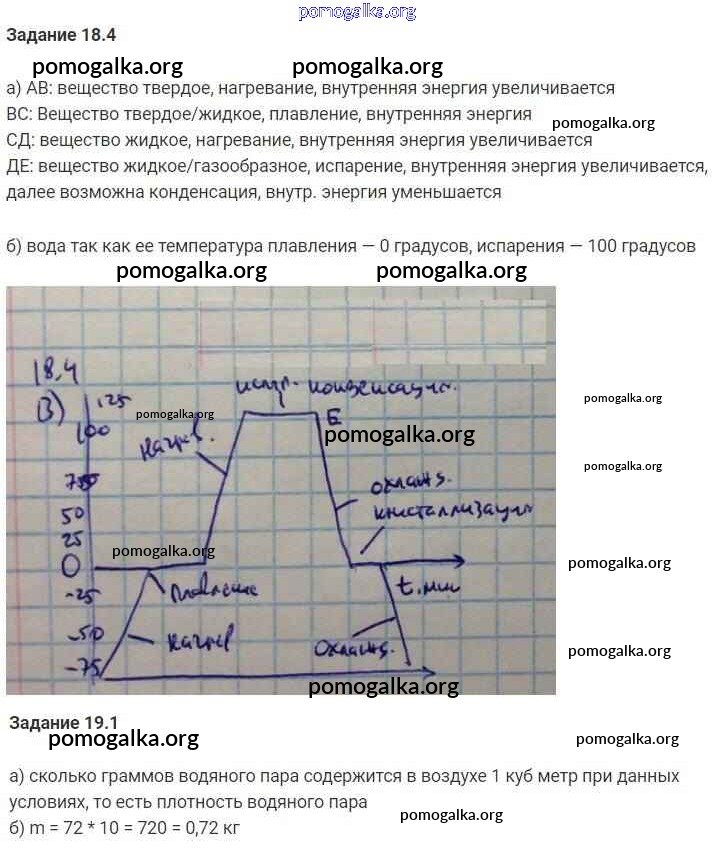 pomogalka.org
Задание 18.4
pomogalka.org pomogalka.org
а) АВ: вещество твердое, нагревание, внутренняя энергия увеличивается
ВС: Вещество твердое/жидкое, плавление, внутренняя энергия
pomogalka.org
СД: вещество жидкое, нагревание, внутренняя энергия увеличивается
ДЕ: вещество жидкое/газообразное, испарение, внутренняя энергия увеличивается,
далее возможна конденсация, внутр. энергия уменьшается
б) вода так как ее температура плавления — 0 градусов, испарения — 100 градусов
pomogalka.org pomogalka.org
18.4
В) 125 испр. конденсация.
pomogalka.org pomogalka.org
100 Е
нагрев. pomogalka.org
pomogalka.org
75 охлажд.
50 кристаллизация
25
pomogalka.org
0 pomogalka.org
-25 плавление t, мин
-50 нагрев охлажд.
pomogalka.org
-75
pomogalka.org
Задание 19.1
pomogalka.org pomogalka.org
а) сколько граммов водяного пара содержится в воздухе 1 куб метр при данных
условиях, то есть плотность водяного пара
pomogalka.org
б) m = 72 * 10 = 720 = 0,72 кг